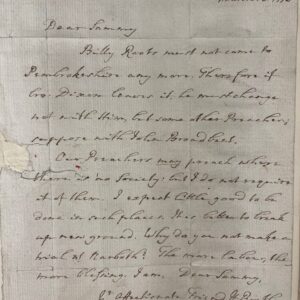 Dear Sammy
Billy Roots must not come to
Pembrokeshire any more. Therefore if
bro. Dixon leaves it, he must change
not with Him, but some other Preacher,
suppose with John Broadbent.
Our Preachers may preach where
there is no Society: but I do not require
it of them. I expect little good to be
done in such places. It is better to break
up new ground. Why do you not make a
trial at Narboth? The more labour, the
more blessing. I am, Dear Sammy,
Yr affectionate Friend &